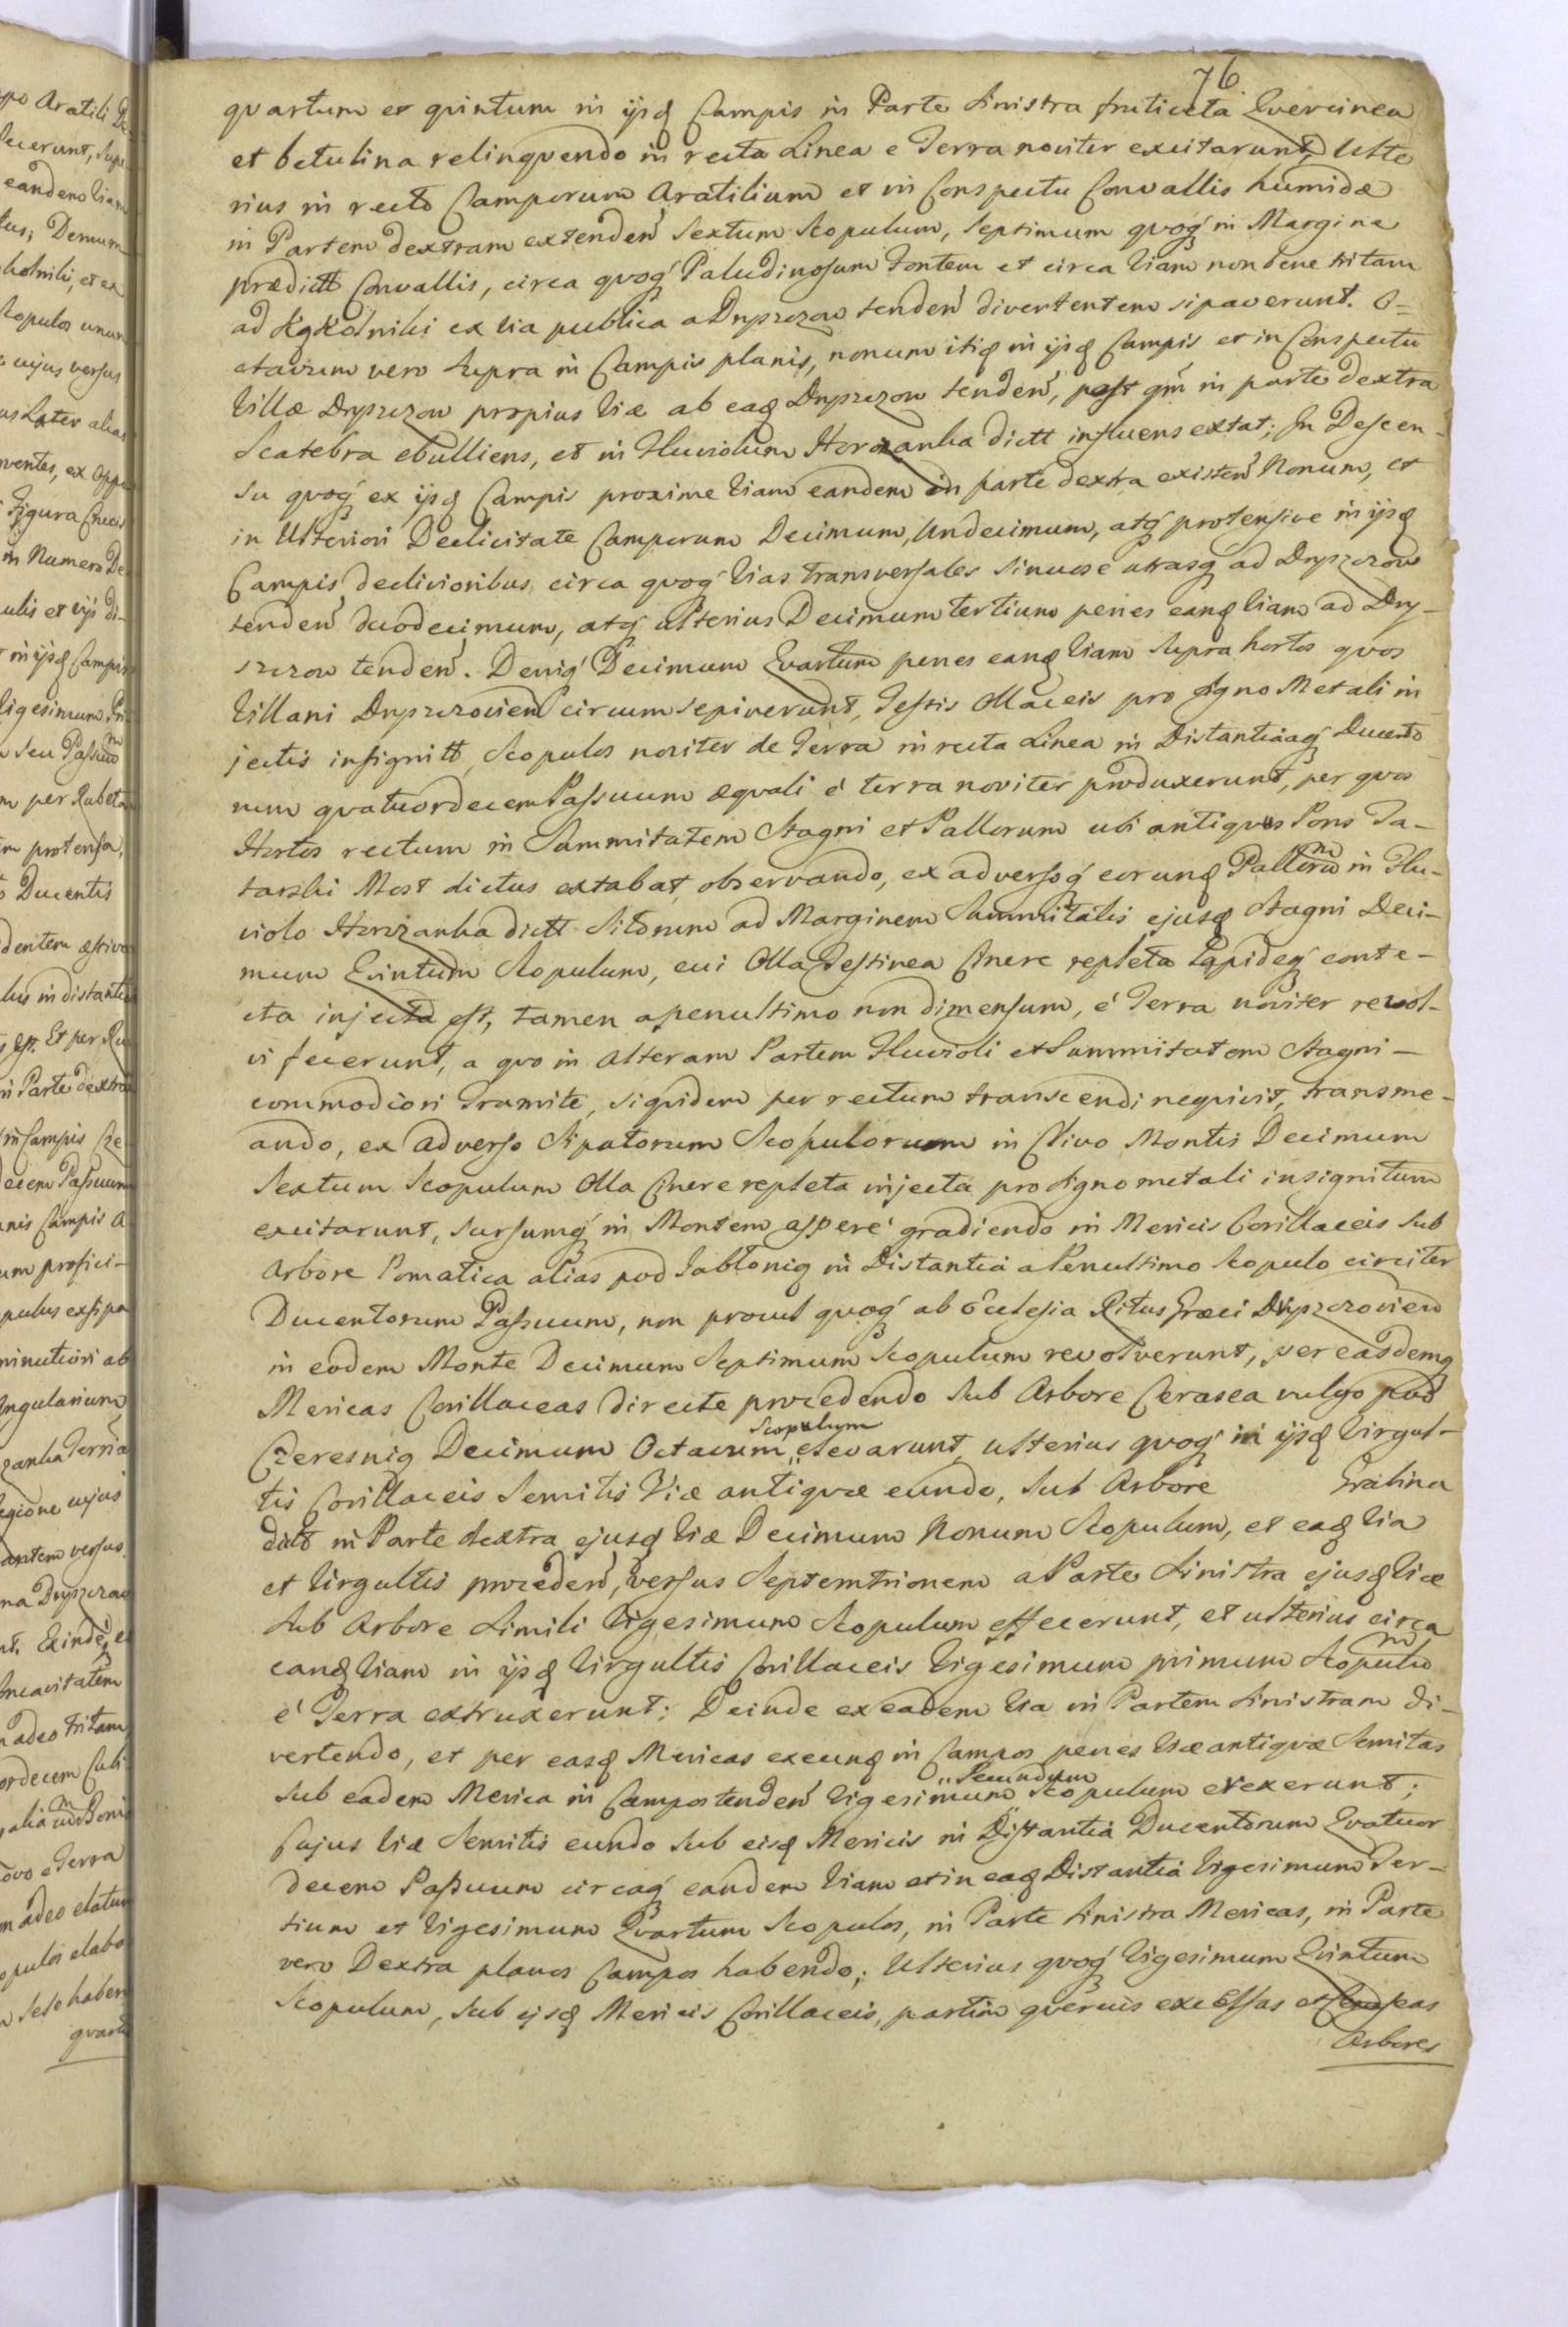 76
quartum et quintum in ijsq Campis in Parte Sinistra fruticeta Quercinea
et betulina relinquendo in recta Linea e Terra noviter excitarunt, Ulte
rius in recto Camporum Aratilium et in Conspectu Convallis humidæ
in Partem dextram extenden Sextum Scopulum, Septimum quoq in Margine
prædictt Convallis, circa quoq Paludinosum Fontem et circa Viam non bene tritam
ad Kąkolniki ex via publica a Dryszczow tenden divertentem sipaverunt. O=
ctavum vero Supra in Campis planis, nonum itiq in ijsq Campis et in Conspectu
Villæ Dryszczow propius Viæ ab eaq Dryszczow tenden, post qm in parte dextra
Scatebra ebulliens, et in Fluviolum Horozanka dictt influens extat; In Descen-
su quoq ex ijsq Campis proxime Viam eandem in parte dextra existen Nonum, et
in Ulteriori Declivitate Camporum Decimum, Undecimum, atq protensive in ijsq
Campis declivioribus circa quoq Vias transversales Sinuose utrasq ad Dryszczow
tenden duodecimum, atq ulterius Decimum tertium penes eanq Viam ad Dry-
szczow tenden. Deniq Decimum Quartum penes eanq Viam Supra hortos quos
Villani Dryszczovien circumsepiverunt, Testis Ollaceis pro Signo Metali in
jectis insignitt, Scopulos noviter de Terra in recta Linea in Distantiaq Ducento
rum quatuordecem Passuum æquali è terra noviter produxerunt, per quos
Hortos rectum in Summitatem Stagni et Pallorum ubi antiquus Pons Ta-
tarski Most dictus extabat, observando, ex adversoq eorunq Pallorum in Flu-
violo Horozanka dictt Sitorum ad Marginem Summitatis ejusq Stagni Deci-
mum Quintum Scopulum, cui Olla Testinea Cinere repleta Lapideq conte-
cta injecta est, tamen a penultimo non dimensum, è Terra noviter revol-
vi fecerunt, a quo in alteram Partem Fluvioli et Summitatem Stagni -
commodiori Tramite, siquidem per rectum transcendi nequivit, transme-
ando, ex adverso Sipatorum Scopulorum in Clivo Montis Decimum
Sextum Scopulum Olla Cinere repleta injecta pro Signo metali insignitum
excitarunt, Sursumq in Montem asperè gradiendo in Mericis Corillaceis Sub
Arbore Pomatica alias pod Jabłonią in Distantia a Penultimo Scopulo circiter
Ducentorum Passuum, non procul quoq ab Ecclesia Ritus Græci Dryszczovien
in eodem Monte Decimum Septimum Scopulum revolverunt, per easdemq
Mericas Corillaceas directe procedendo Sub Arbore Cerasea vulgo pod
Czeresnią Decimum Octavum Scopulum elevarunt, ulterius quoq in ijsq Virgul-
tis Corillaceis Semitis Viæ antiquæ eundo, Sub Arbore Grabina
dict in Parte dextra ejusq Viæ Decimum Nonum Scopulum, et eaq Via
et Virgultis proceden, versus Septemtrionem a Parte Sinistra ejusq Viæ
Sub Arbore Simili Vigesimum Scopulum effecerunt, et ulterius circa
eanq Viam in ijsq Virgultis Corillaceis Vigesimum primum Scopulum
è Terra extruxerunt; Deinde ex eadem Via in Partem Sinistram di-
vertendo, et per easq Mericas exeunq in Campos penes Viæ antiquæ Semitas
Sub eadem Merica in Campos tenden Vigesimum Secundum Scopulum erexerunt;
Cujus Viæ Semitis eundo Sub eisq Mericis in Distantia Ducentorum Quatuor
decem Passuum circaq eandem Viam et in eaq Distantia Vigesimum Ter-
tium et Vigesimum Quartum Scopulos, in Parte Sinistra Mericas, in Parte
vero Dextra planos Campos habendo; Ulterius quoq Vigesimum Quintum
Scopulum, Sub ijsq Mericis Corillaceis, partim quercus excelsas et
Arbores